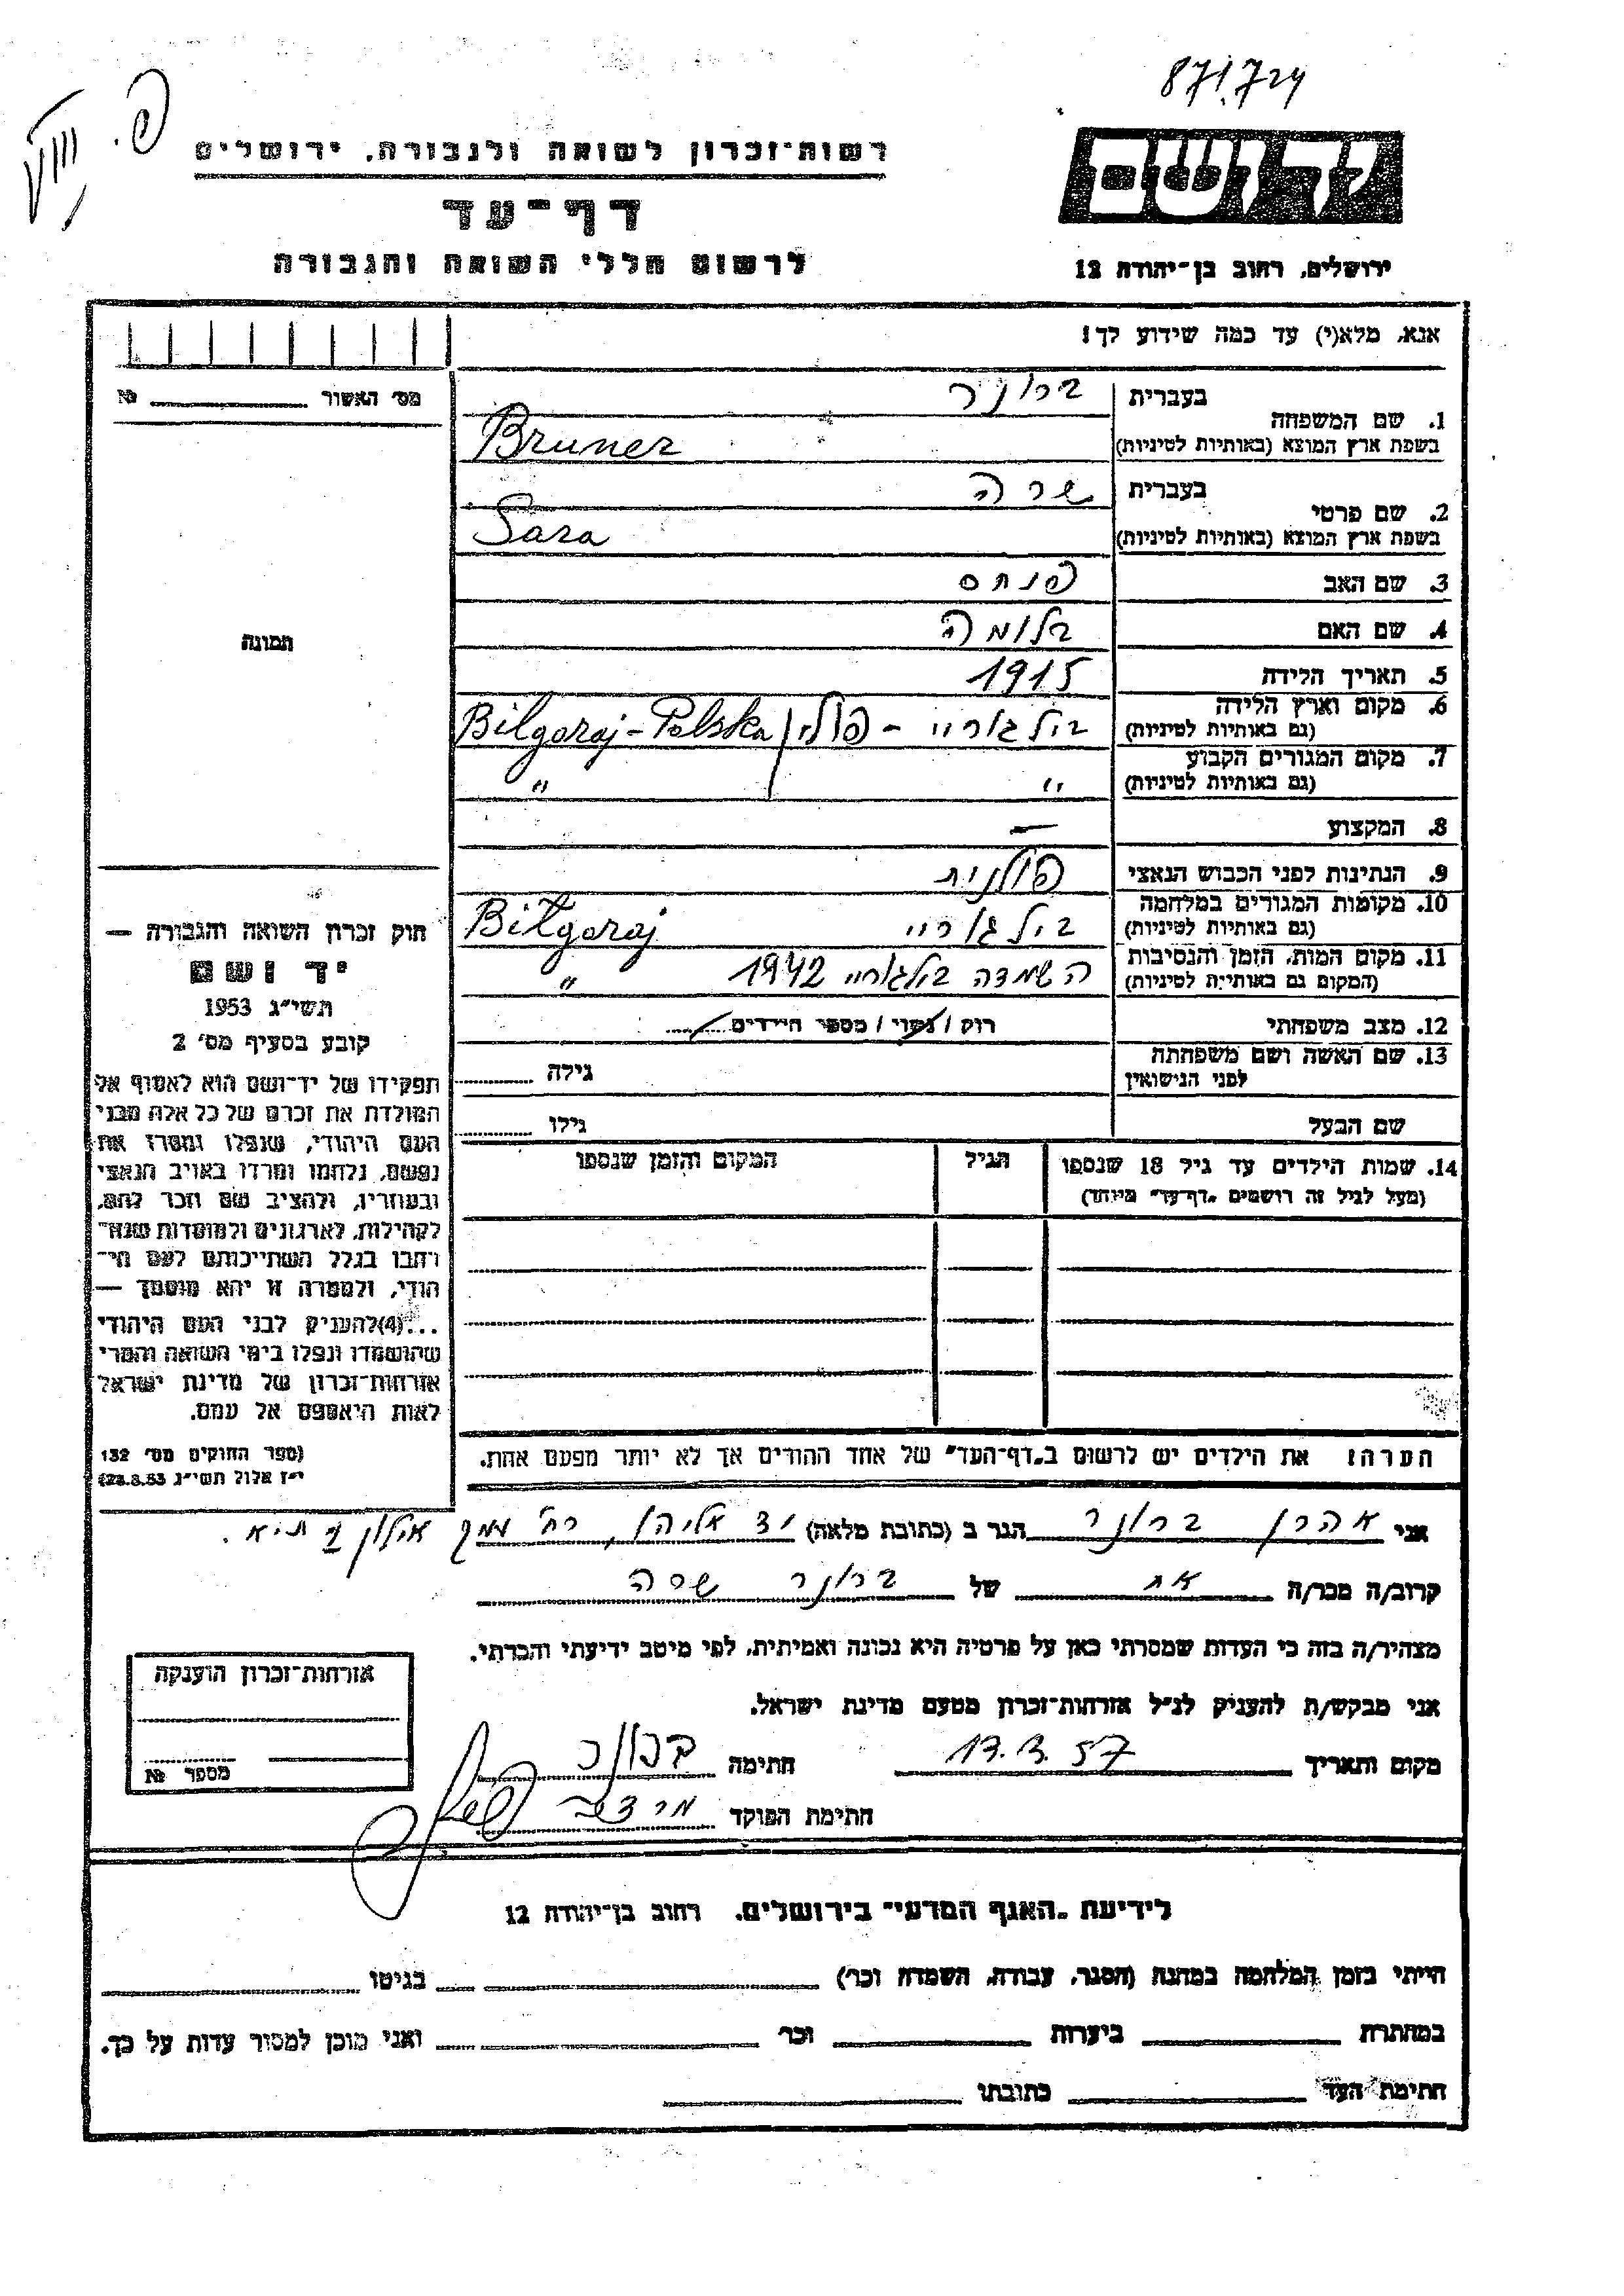 871.724
פ.
רשות־זכרון לשואה ולגבורה, ירושלים
ידושם
דף־עד
לרשום חללי השואה והגבורה
ירושלים, רחוב בן־יהודה 12
אנא, מלא(י) עד כמה שידוע לך!
מס׳ האשור № 
1. שם המשפחה
בעברית ברונר
בשפת ארץ המוצא (באותיות לטיניות) Bruner
2. שם פרטי
בעברית שרה
בשפת ארץ המוצא (באותיות לטיניות) Sara
3. שם האב פנחס
4. שם האם בלומה
תמונה
5. תאריך הלידה 1915
6. מקום וארץ הלידה בילגוריי - פולין Bilgoraj-Polska
(גם באותיות לטיניות)
7. מקום המגורים הקבוע
(גם באותיות לטיניות) " "
8. המקצוע —
9. הנתינות לפני הכבוש הנאצי פולנית
10. מקומות המגורים במלחמה
(גם באותיות לטיניות) בילגוריי Biłgoraj
11. מקום המות, הזמן והנסיבות
(המקום גם באותיות לטיניות) השמדה בילגוריי 1942 "
12. מצב משפחתי רוק / נשוי / מספר הילדים
13. שם האשה ושם משפחתה
לפני הנישואין גילה
שם הבעל גילו
14. שמות הילדים עד גיל 18 שנספו הגיל המקום והזמן שנספו
(מעל לגיל זה רושמים "דף־עד" מיוחד)
חוק זכרון השואה והגבורה —
יד ושם
תשי״ג 1953
קובע בסעיף מס׳ 2
תפקידו של יד־ושם הוא לאסוף אל
המולדת את זכרם של כל אלה מבני
העם היהודי, שנפלו ומסרו את
נפשם, נלחמו ומרדו באויב הנאצי
ובעוזריו, ולהציב שם וזכר להם,
לקהילות, לארגונים ולמוסדות שנח־
רחבו בגלל השתייכותם לעם הי־
הודי, ולמטרה זו יהא מוסמך —
...(4)להעניק לבני העם היהודי
שהושמדו ונפלו בימי השואה והמרי
אזרחות־זכרון של מדינת ישראל
לאות היאספם אל עמם.
(ספר החוקים מס׳ 132
י״ז אלול תשי״ג 28.8.53)
הערה: את הילדים יש לרשום ב"דף־העד" של אחד ההורים אך לא יותר מפעם אחת.
אני אהרן ברונר הגר ב (כתובת מלאה) יד אליהו, רח׳ אילון ת״א.
קרוב/ה מכר/ה אח של ברונר שרה
מצהיר/ה בזה כי העדות שמסרתי כאן על פרטיה היא נכונה ואמיתית, לפי מיטב ידיעתי והכרתי.
אני מבקש/ת להעניק לנ״ל אזרחות־זכרון מטעם מדינת ישראל.
מקום ותאריך 17.3.57 חתימה ברונר
חתימת הפוקד
אזרחות־זכרון הוענקה
מספר №
לידיעת "האגף המדעי" בירושלים, רחוב בן־יהודה 12
הייתי בזמן המלחמה במחנה (הסגר, עבודה, השמדה וכר׳) בגיטו
במחתרת ביערות וכר׳ ואני מוכן למסור עדות על כך.
חתימת העד כתובתו